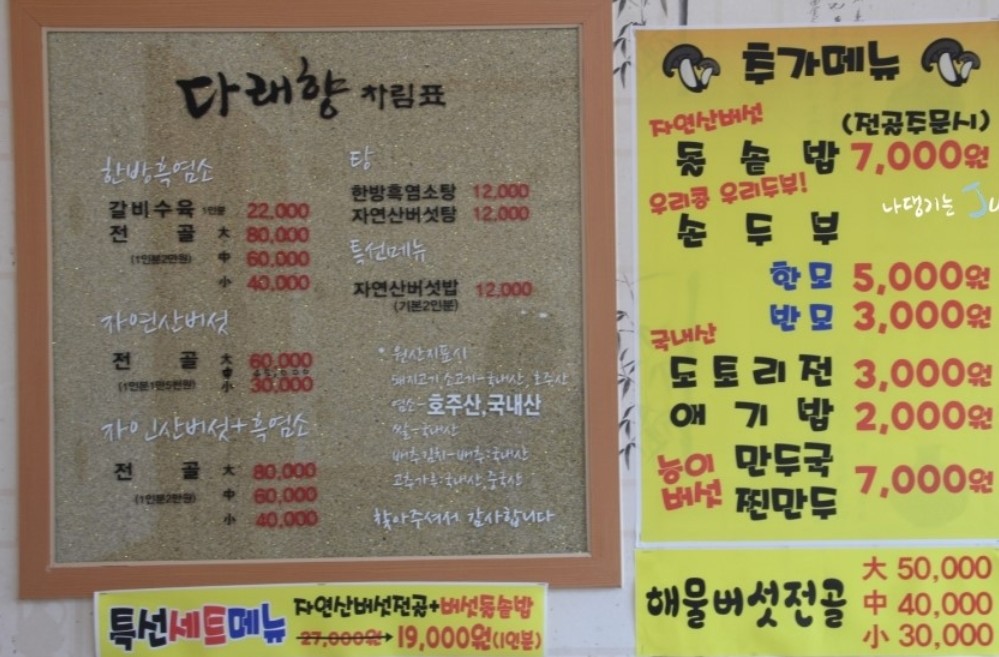 다래향 차림표
한방흑염소
갈비수육 1인분 22,000
전골 大 80,000
(1인분2만원) 中 60,000
小 40,000
자연산버섯
전골 大 60,000
(1인분1만5천원) 小 30,000
자인산버섯+흑염소
전골 大 80,000
(1인분2만원) 中 60,000
小 40,000
탕
한방흑염소탕 12,000
자연산버섯탕 12,000
특선메뉴
자연산버섯밥 12,000
(기본2인분)
원산지표시
돼지고기 소고기-국내산, 호주산
염소-호주산,국내산
쌀-국내산
배추김치-배추:국내산
고추가루:국내산,중국산
찾아주셔서 감사합니다
특선세트메뉴
자연산버섯전골+버섯돌솥밥
27,000원→19,000원(1인분)
추가메뉴
자연산버섯 (전골주문시)
돌솥밥 7,000원
우리콩 우리두부!
나댕기는 Ju
손두부
한모 5,000원
반모 3,000원
국내산
도토리전 3,000원
애기밥 2,000원
능이버섯 만두국
찐만두 7,000원
해물버섯전골 大 50,000
中 40,000
小 30,000